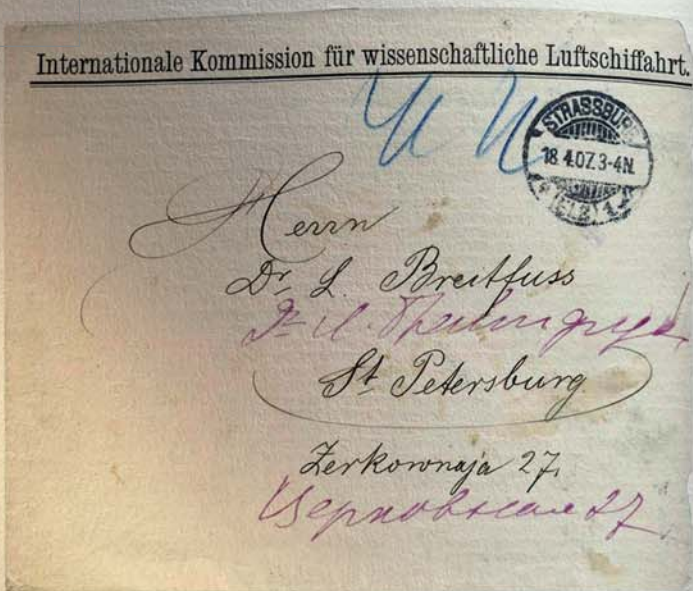 Internationale Kommission für wissenschaftliche Luftschiffahrt.
STRASSBURG
18.4.07.3-4N.
(ELS) 1
Herrn
Dr. L. Breitfuss
Др Л. Брейтфусъ
St. Petersburg
Zerkownaja 27.
Церковная 27